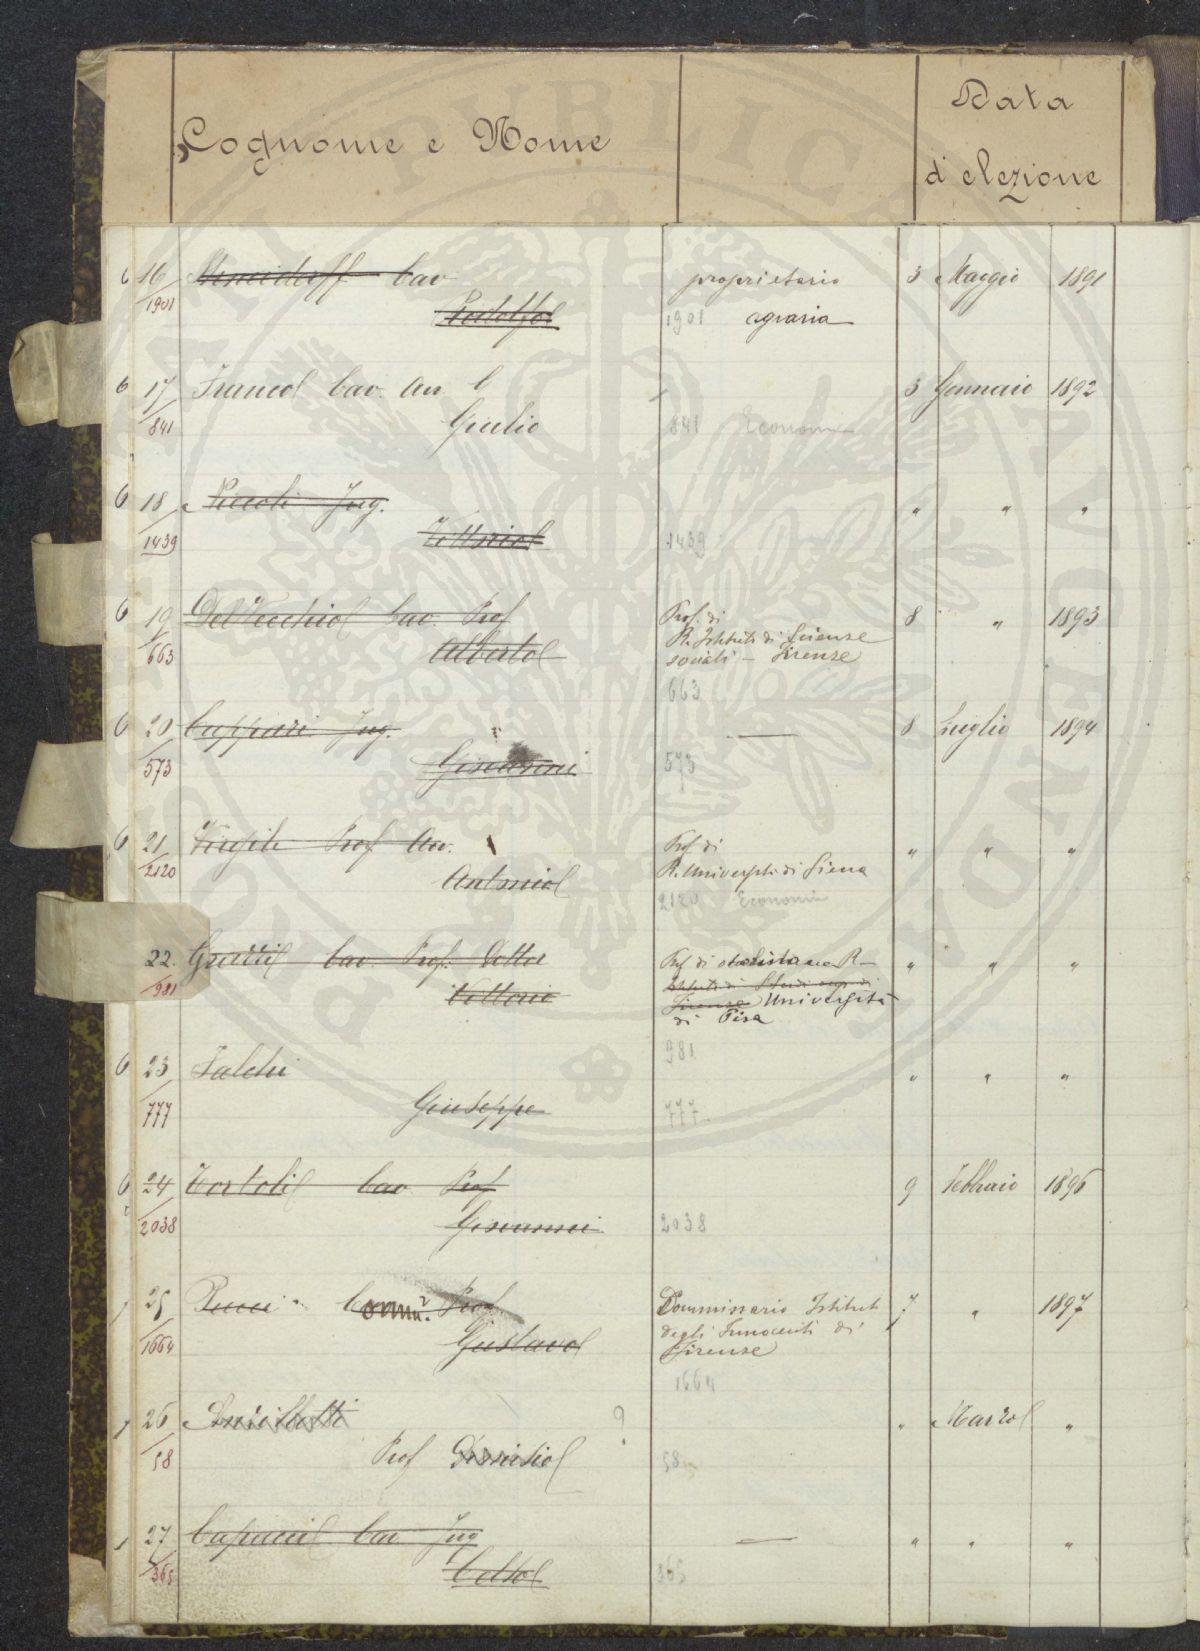 Cognome e Nome
Data
di elezione
6 16 cav proprietario 3 Maggio 1891
1901 Rodolfo 1901 agraria
6 17 Franco Cav. Avv. 3 Gennaio 1892
841 Giulio 841 Economia
6 18 Niccoli Ing. " " "
1439 Vittorio 1439
6 19 Del Vecchio Cav. Prof Prof. di 8 " 1893
R. Istituti di Scienze
663 Alberto sociali - Firenze
663
6 20 Cappari Ing. — 8 Luglio 1894
573 Giovanni 573
6 21 Virgili Prof Avv. Prof di " " "
2120 Antonio R. Università di Siena
2120 Economia
22. Cav. Prof. Dottor Prof di R- " " "
981 Vittorio Istituti di Studi sup. di
Firenze Università
di Pisa
981
6 23 Falchi " " "
777 Giuseppe 777
6 24 Tortoli Cav Prof 9 Febbraio 1896
2038 Giovanni 2038
25 Pucci Comm. Prof Commissario Istituti 7 " 1897
degli Innocenti di
1664 Gustavo Firenze
1664
26 ? " Marzo "
58 Prof Dionisio 58
27 Capacci Cav Ing — " " "
365 Celso 365